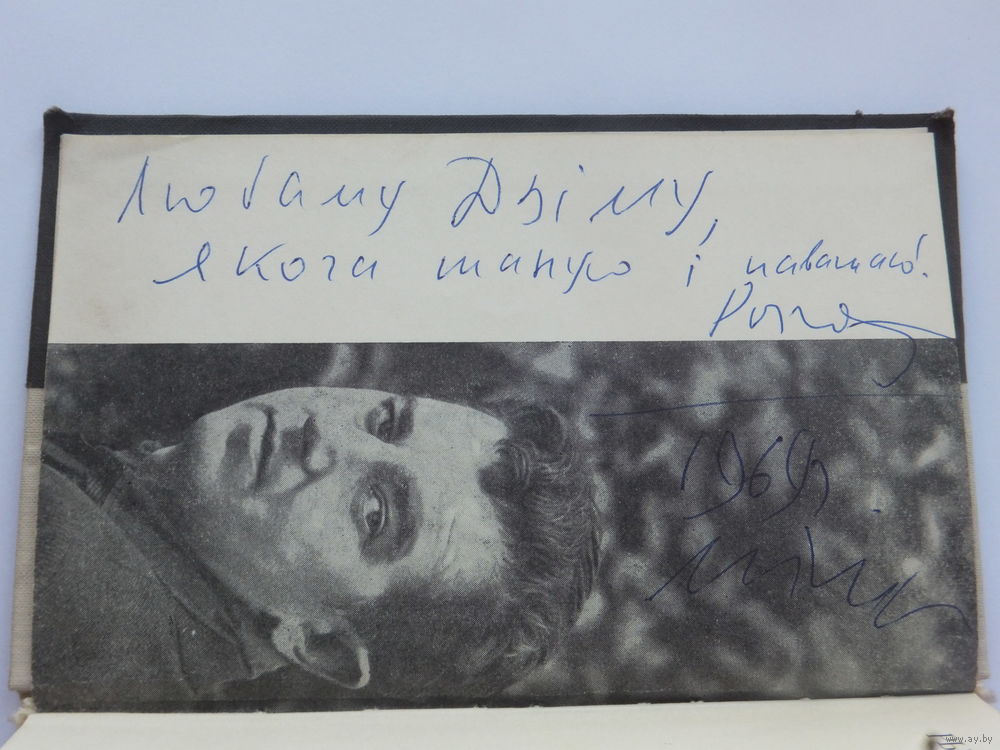 Любаму Дзіму,
якога шаную і паважаю.
1969
www.ay.by